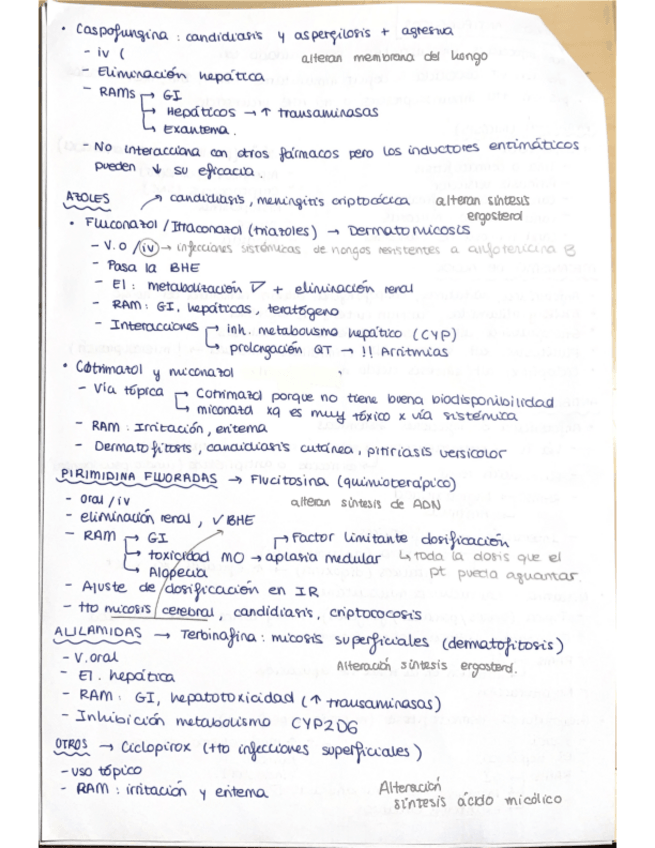 • Caspofungina : candidiasis y aspergilosis + agresiva
- iv ( alteran membrana del hongo
- Eliminación hepática
- RAMs → GI
→ Hepáticos → ↑ transaminasas
→ Exantema.
- No interacciona con otros fármacos pero los inductores enzimáticos
pueden ↓ su eficacia.
AZOLES → candidiasis, meningitis criptocócica alteran síntesis
ergosterol
• Fluconazol / Itraconazol (triazoles) → Dermatomicosis
- V.O / iv → infecciones sistémicas de hongos resistentes a anfotericina B
- Pasa la BHE
- El : metabolización + eliminación renal
- RAM : GI, hepáticas, teratógeno
- Interacciones → inh. metabolismo hepático (CYP)
→ prolongación QT → !! Arritmias
• Cotrimazol y miconazol
- Vía tópica → Cotrimazol porque no tiene buena biodisponibilidad
→ miconazol xq es muy tóxico x vía sistémica
- RAM : Irritación, eritema
- Dermatofitosis, candidiasis cutánea, pitiriasis versicolor
PIRIMIDINA FLUORADAS → Flucitosina (quimioterápico)
- oral / iv alteran síntesis de ADN
- eliminación renal, √ BHE
- RAM → GI → Factor limitante dosificación
→ toxicidad MO → aplasia medular ↳ toda la dosis que el
→ Alopecia pt pueda aguantar.
- Ajuste de dosificación en IR
- tto micosis cerebral, candidiasis, criptococosis
ALILAMIDAS → Terbinafina : micosis superficiales (dermatofitosis)
- V. oral Alteración síntesis ergosterol.
- El. hepática
- RAM : GI, hepatotoxicidad (↑ transaminasas)
- Inhibición metabolismo CYP2D6
OTROS → Ciclopirox (tto infecciones superficiales)
- uso tópico
- RAM : irritación y eritema Alteración
síntesis ácido micólico